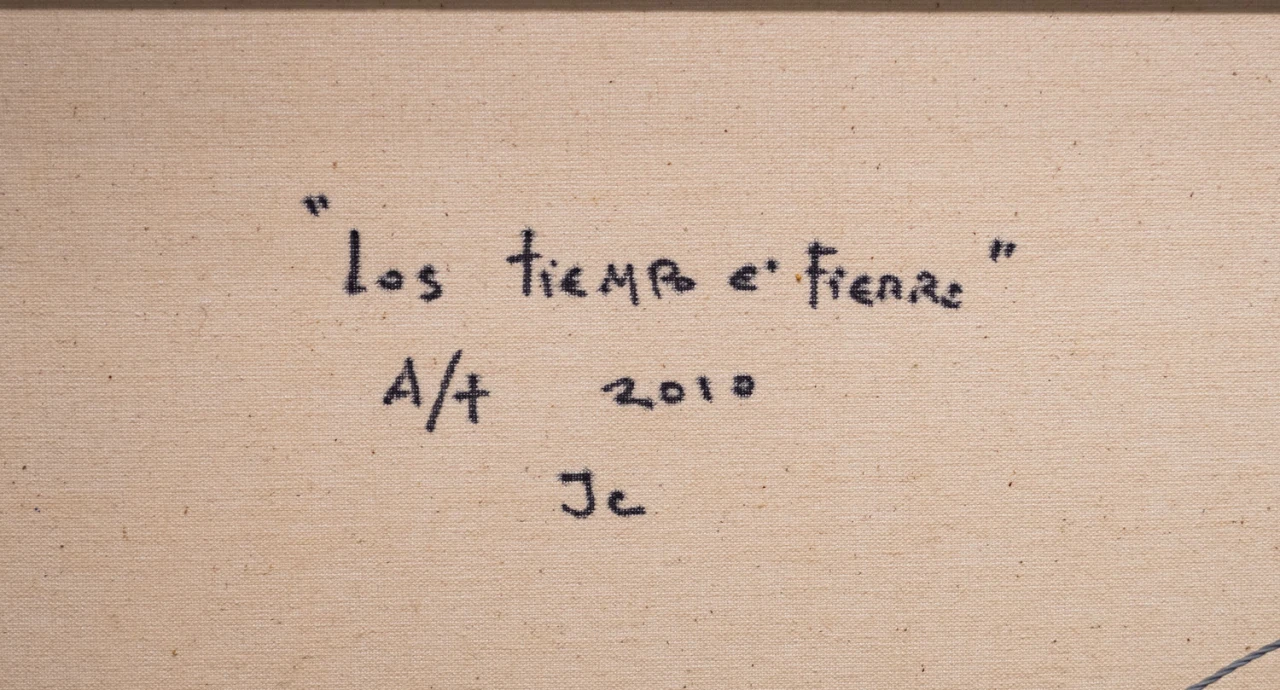 "Los tiempo e' fierro"
A/t 2010
Jc